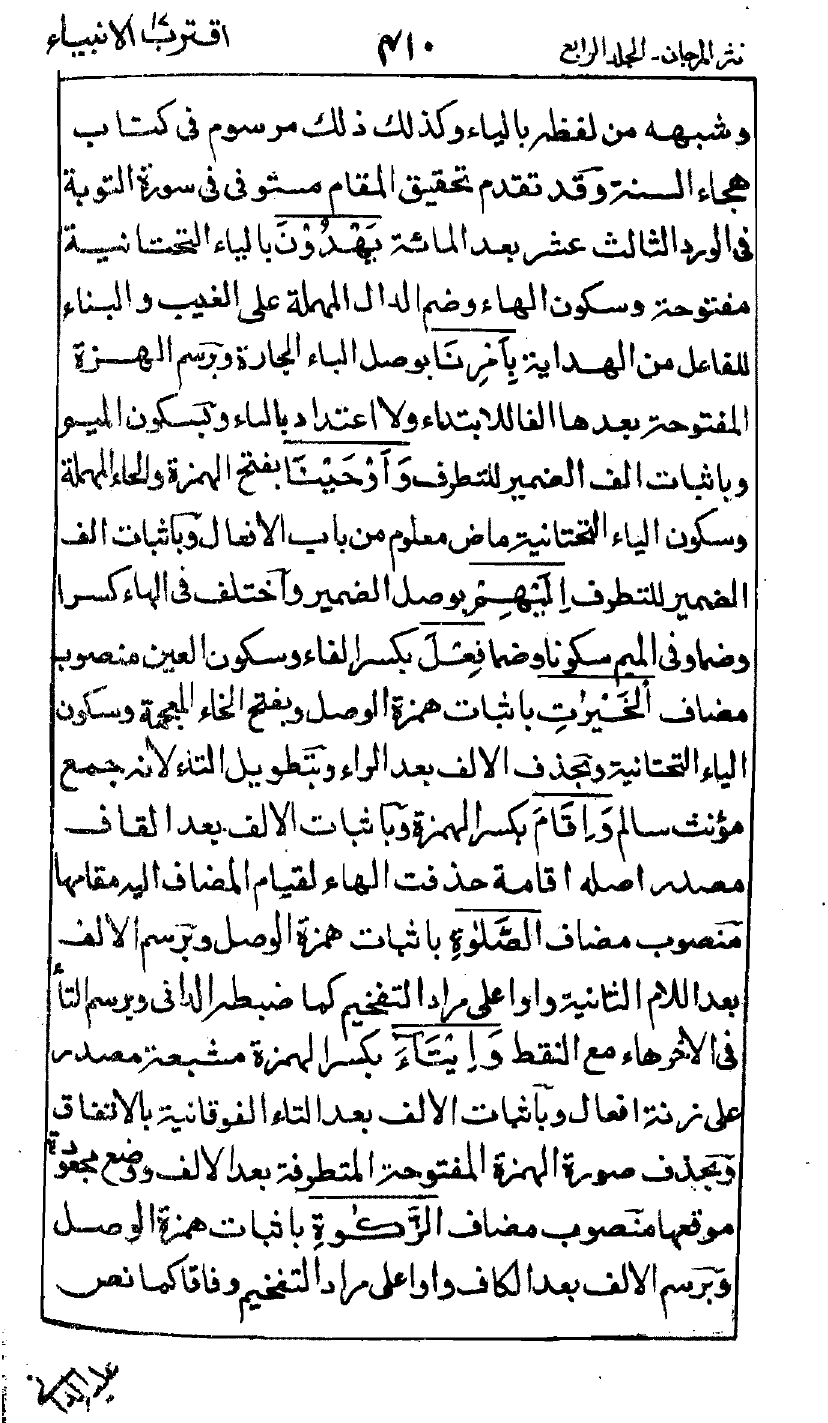 نثر المرجان - الجلد الرابع ٤١٠ اقترب ١٧ الانبياء
وشبهه من لفظه بالياء وكذلك ذلك مرسوم فى كتاب
هجاء السنة وقد تقدم تحقيق المقام مستوفى فى سورة التوبة
فى الورد الثالث عشر بعد المائة يَهْدُوْنَ بالياء التحتانية
مفتوحة وسكون الهاء وضم الدال المهملة على الغيب والبناء
للفاعل من الهداية بِاَمْرِنَا بوصل الباء الجارة وبرسم الهمزة
المفتوحة بعدها الفا للابتداء ولا اعتداد بالباء وبسكون الميم
وباثبات الف الضمير للتطرف وَاَوْحَيْنَا بفتح الهمزة والحاء المهملة
وسكون الياء التحتانية ماض معلوم من باب الافعال وباثبات الف
الضمير للتطرف اِلَيْهِمْ بوصل الضمير واختلف فى الهاء كسرا
وضما وفى الميم سكونا وضما فِعْلَ بكسر الفاء وسكون العين منصوب
مضاف الْخَيْرٰتِ باثبات همزة الوصل وبفتح الخاء المعجمة وسكون
الياء التحتانية وبحذف الالف بعد الراء وبتطويل التاء لانه جمع
مؤنث سالم وَاِقَامَ بكسر الهمزة وباثبات الالف بعد القاف
مصدر اصله اقامة حذفت الهاء لقيام المضاف اليه مقامها
منصوب مضاف الصَّلٰوةِ باثبات همزة الوصل وبرسم الالف
بعد اللام الثانية واوا على مراد التفخيم كما ضبطه الدانى وبرسم التاء
فى الاخر هاء مع النقط وَاِيْتَآءَ بكسر الهمزة مشبعة مصدر
على زنة افعال وباثبات الالف بعد التاء الفوقانية بالاتفاق
وبحذف صورة الهمزة المفتوحة المتطرفة بعد الالف ووضع مجعودة
موقعها منصوب مضاف الزَّكٰوةِ باثبات همزة الوصل
وبرسم الالف بعد الكاف واوا على مراد التفخيم وفاقا كما نص
عليه الدانى